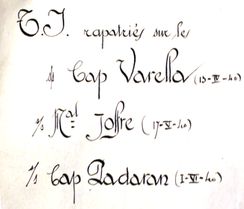 T.I. rapatriés sur le
s/s Cap Varella (13-IV-40)
s/s Mal Joffre (17-V-40)
s/s Cap Padaran (1-VI-40)